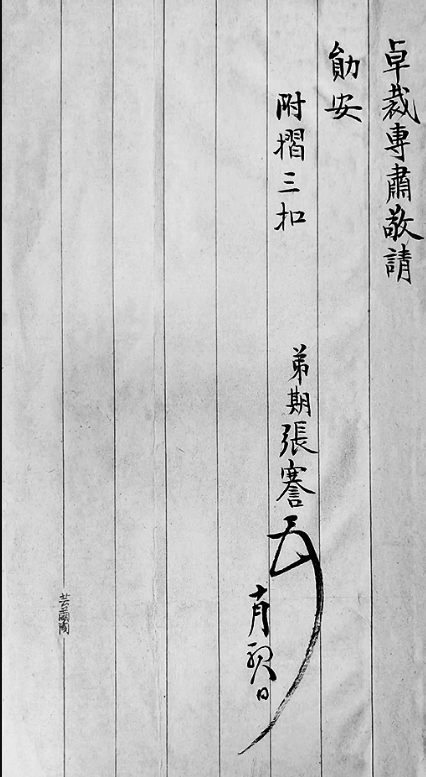 卓裁專肅敬請
勛安
附摺三扣
弟期張謇
十月日